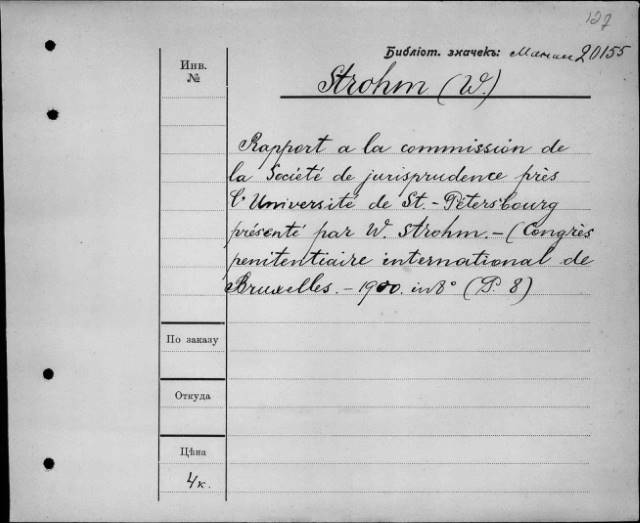 127
Библіот. значекъ: 20155
Инв.
№
Strohm (W.)
Rapport a la commission de
la Société de jurisprudence près
l'Université de St.-Pétersbourg
présenté par W. Strohm. - (Congrès
penitentiaire international de
Bruxelles. - 1900. in 8° (P. 8)
По заказу
Откуда
Цѣна
4к.